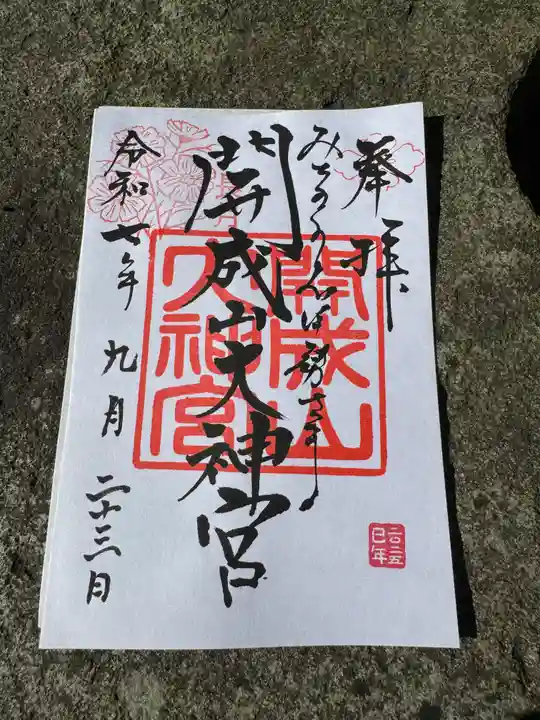 奉拝
みちのくのお伊勢さま
開成山大神宮
開成山大神宮
令和七年 九月 二十三日
二〇二五
巳年